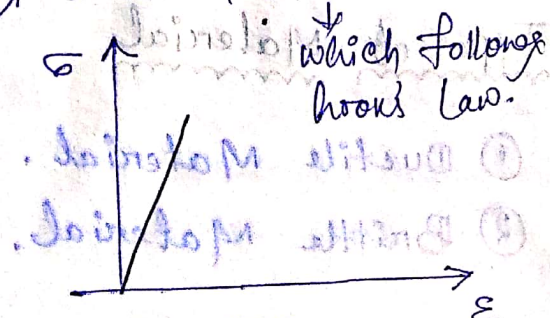 which follows
hook's Law.
σ
ε